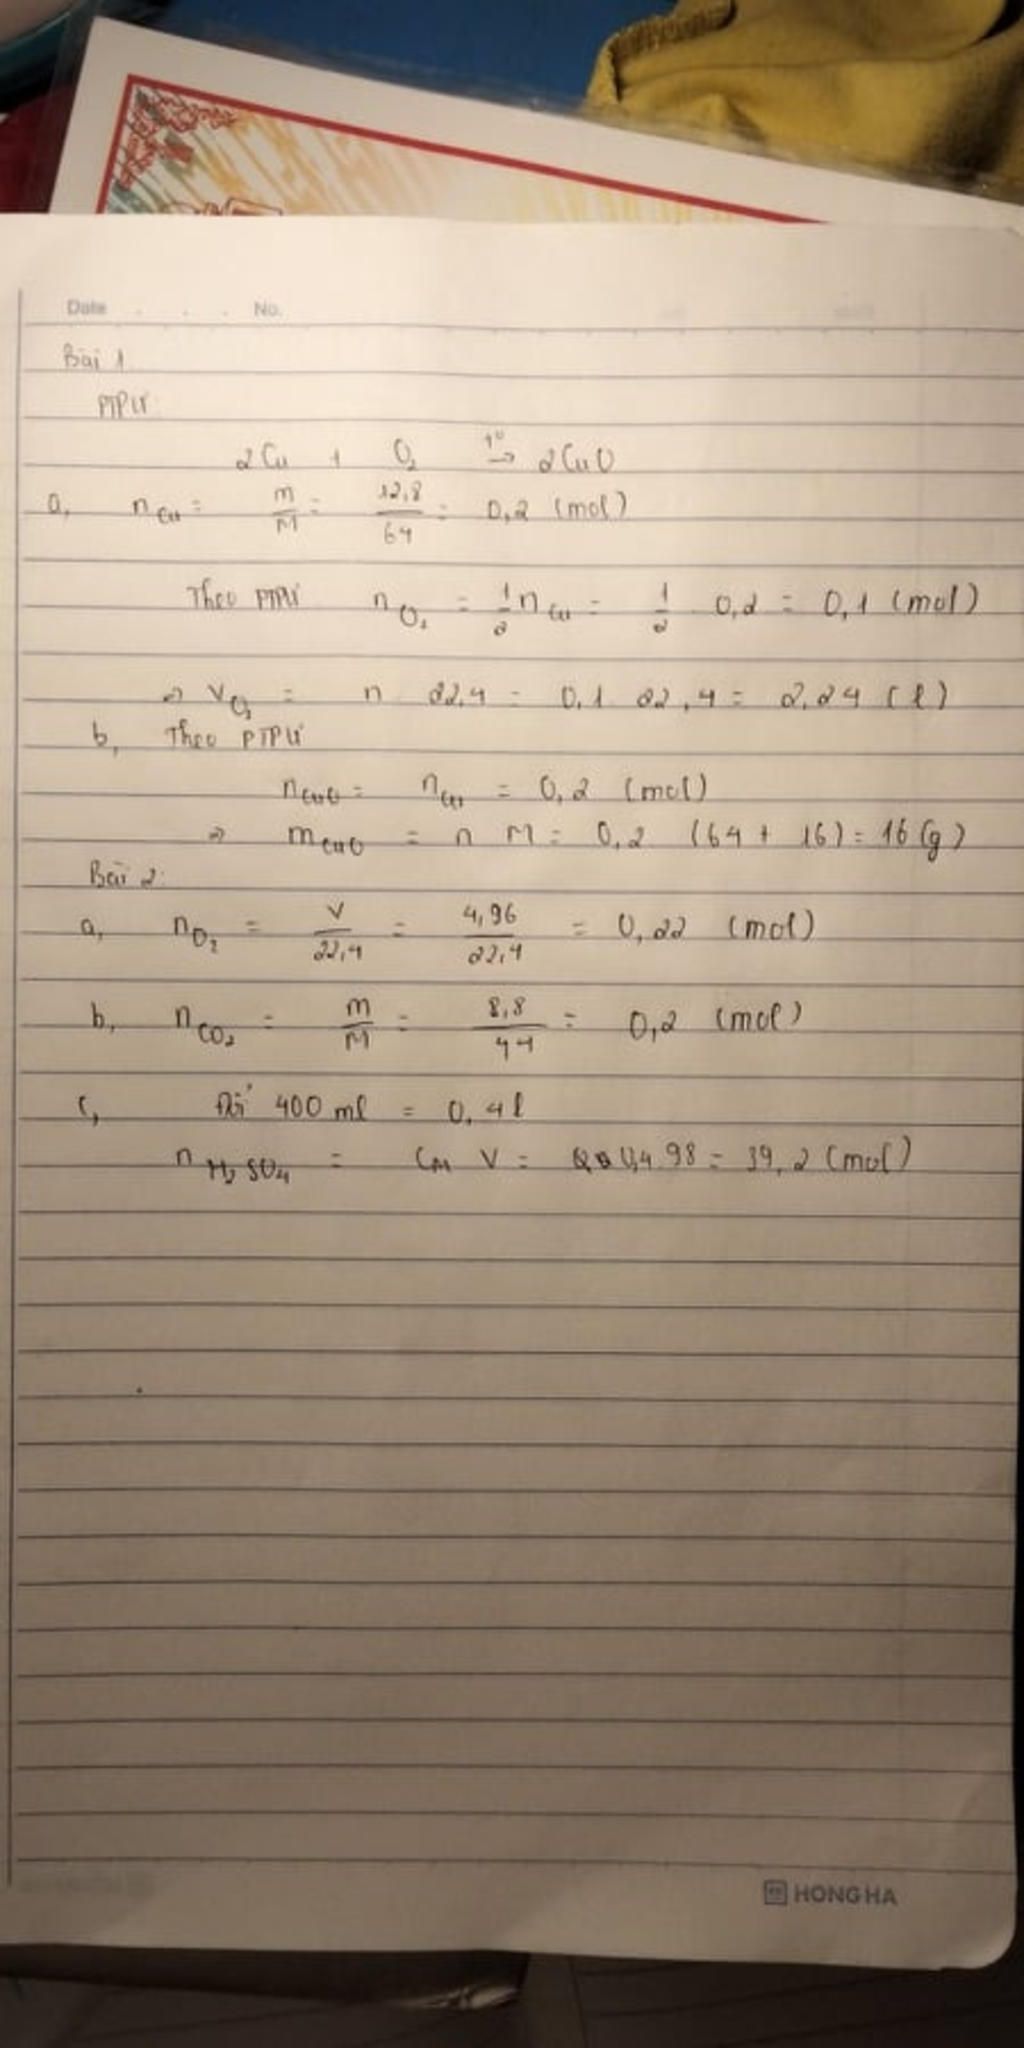 Date . . . No.
Bài 1
PTPƯ
2Cu + O₂ t° → 2CuO
a, nCu = m/M = 12,8/64 = 0,2 (mol)
Theo PTPƯ nO₂ = 1/2 nCu = 1/2 0,2 = 0,1 (mol)
⇒ VO₂ = n 22,4 = 0,1 22,4 = 2,24 (l)
b, Theo PTPƯ
nCuO = nCu = 0,2 (mol)
⇒ mCuO = n M = 0,2 (64 + 16) = 16 (g)
Bài 2:
a, nO₂ = V/22,4 = 4,96/22,4 = 0,22 (mol)
b, nCO₂ = m/M = 8,8/44 = 0,2 (mol)
c, Đổi 400 ml = 0,4 l
nH₂SO₄ = CM V = 0,4 98 = 39,2 (mol)
HONG HA